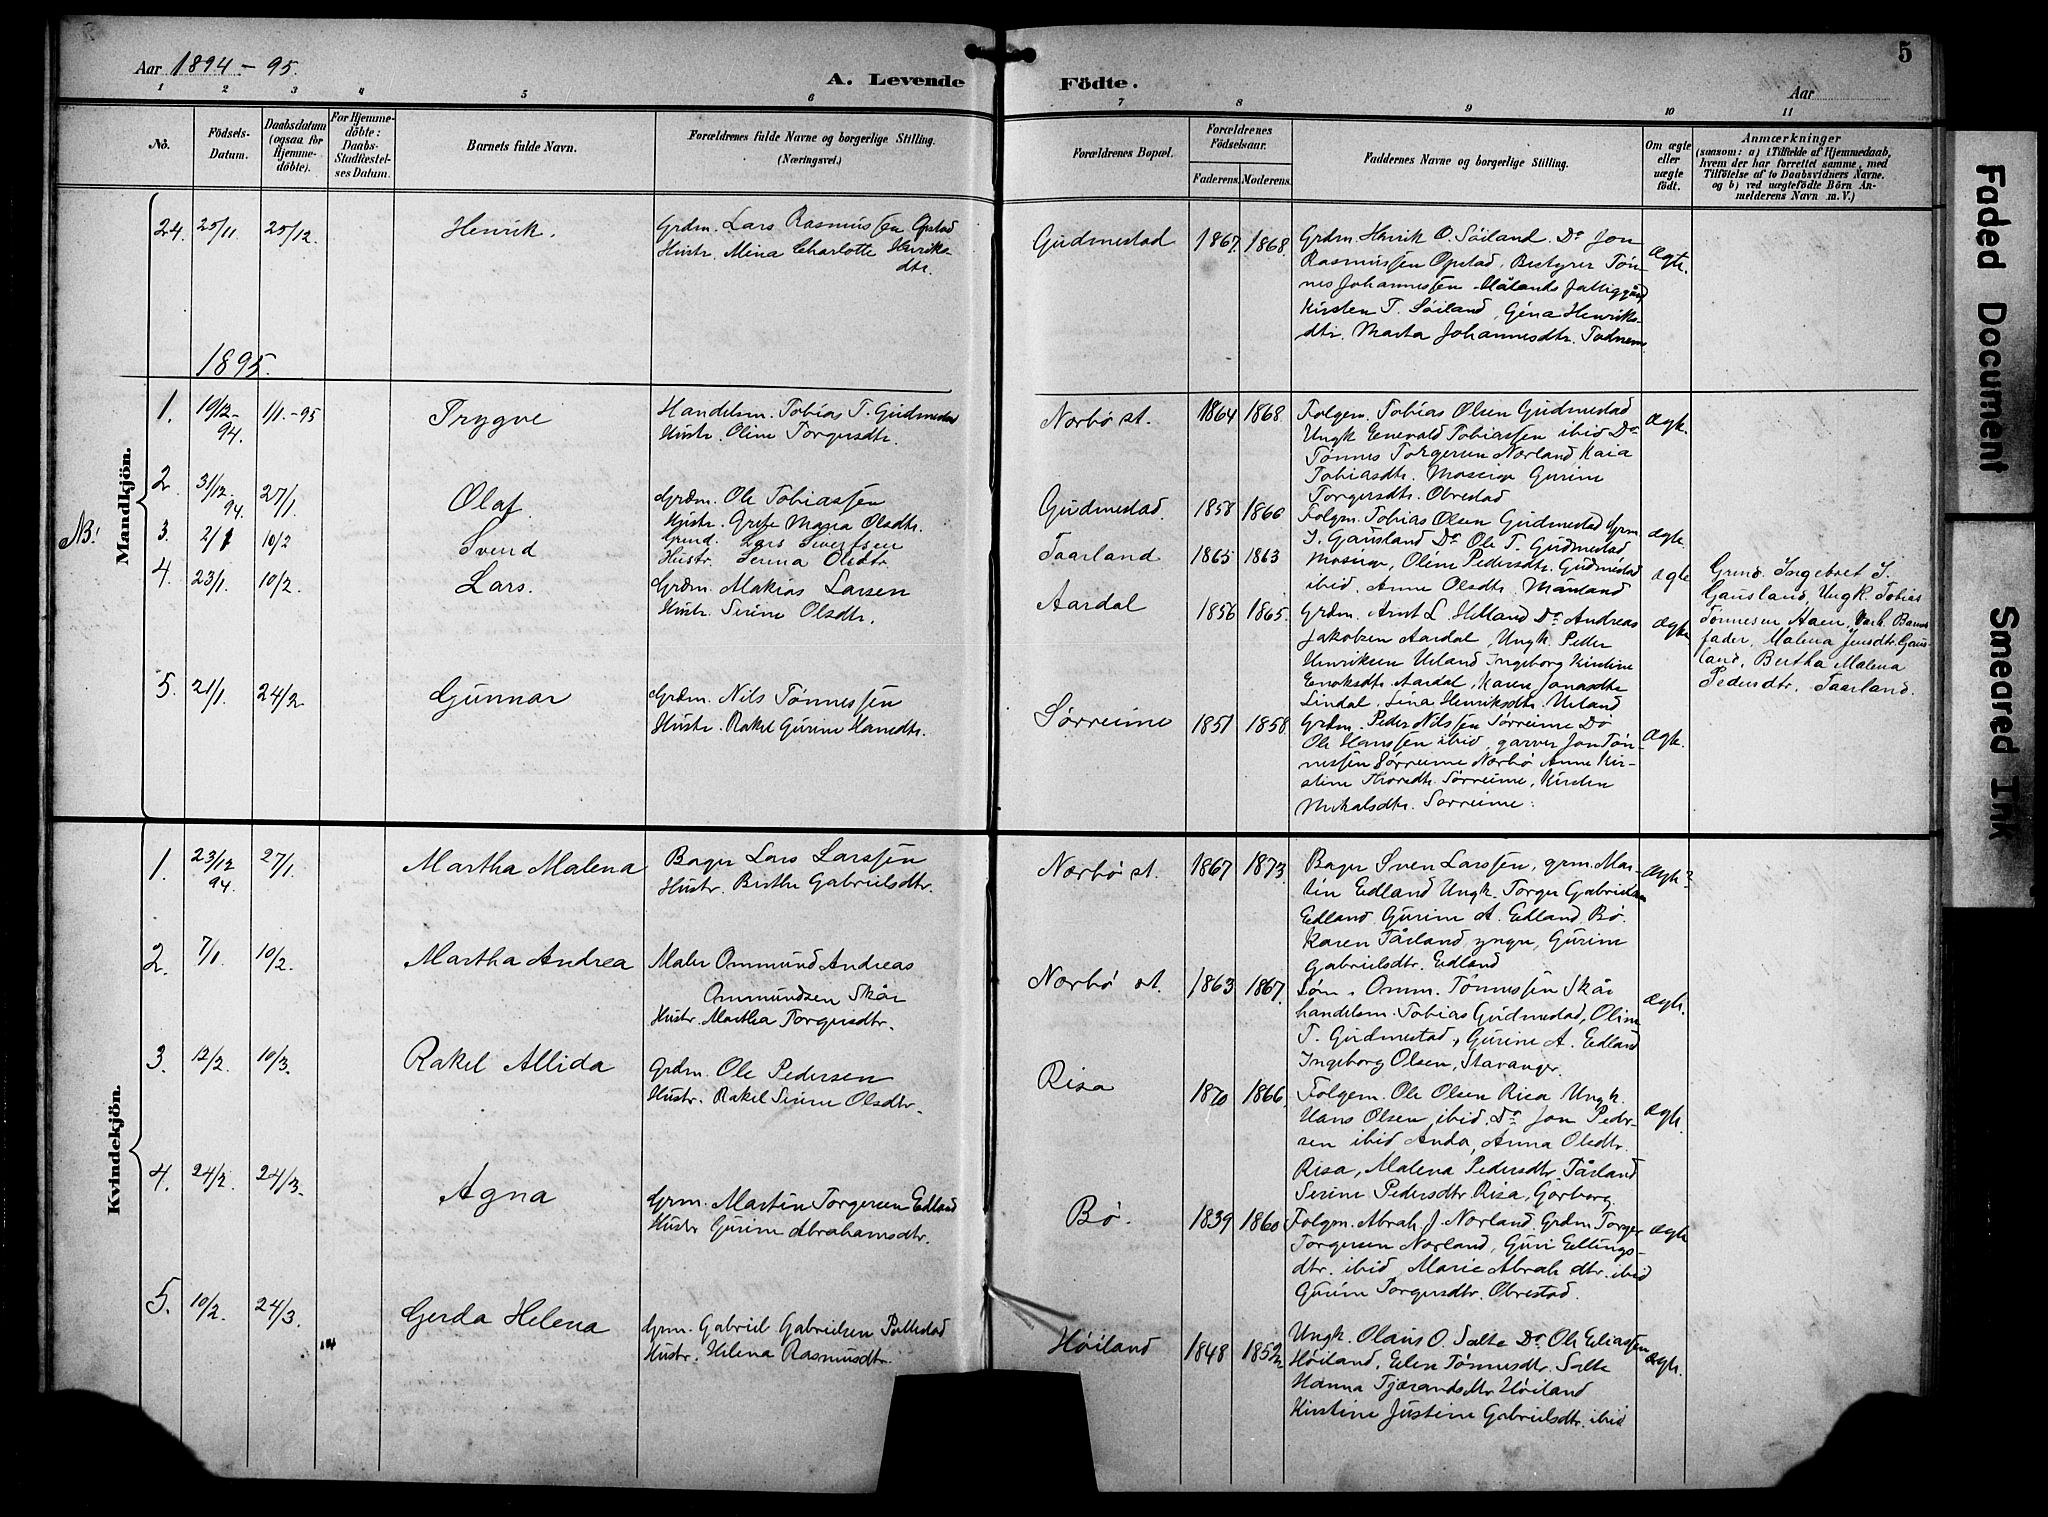 Aar 1894-95.
A. Levende Födte.
Aar
5
1 2 3 4 5 6 7 8 9 10 11
No.
Födsels-Datum.
Daabsdatum (ogsaa for Hjemme-döbte).
For Hjemme-döbte: Daabs-Stadfæstel-ses Datum.
Barnets fulde Navn.
Forældrenes fulde Navne og borgerlige Stilling.
(Næringsvei.)
Forældrenes Bopæl.
Forældrenes Födselsaar.
Faderens. Moderens.
Faddernes Navne og borgerlige Stilling.
Om ægte eller uægte födt.
Anmærkninger
(saasom: a) i Tilfælde af Hjemmedaab,
hvem der har forrettet samme, med
Tilföielse af to Daabsvidners Navne.
og b) ved uægtefödte Börn An-
melderens Navn m. V.)
24. 25/11. 25/12. Henrik.
Grdm. Lars Rasmussen Opstad
Hustr. Mina Charlotte Henriks-
dtr.
Gudmestad 1867. 1868.
Grdm. Henrik O. Söiland. Do Jon
Rasmussen Opstad, Bestyrer Tøn-
nes Johannessen Hålands fattiggård
Kirsten T. Søiland, Gina Henriks-
dtr. Marta Johannesdtr. Tadnem.
ægte.
1895.
Mandkjön.
1. 19/12-94. 1/1.-95 Trygve
Handelsm. Tobias T. Gudmestad
Hustr. Oline Torgersdtr.
Nærbø st. 1864 1868.
Folgem. Tobias Olsen Gudmestad
Ungk. Enevald Tobiassen ibid Do
Tønnes Torgersen Norland Kaia
Tobiasdtr. Mossige Gurine
Torgersdtr. Obrestad
ægte.
2. 31/12-94. 27/1. Olaf.
Grdm. Ole Tobiassen
Hustr. Grete Maria Olsdtr.
Gudmestad. 1858 1866
Folgm. Tobias Olsen Gudmestad Grm
I. Gausland Do Ole T. Gudmestad
Mossige, Oline Pedersdtr. Gudmestad
ibid. Anne Olsdtr. Månland
ægte.
NB!
3. 2/1 10/2 Svend
Grmd. Lars Sivertsen
Hustr. Serina Olsdtr.
Taarland 1865 1863
ægte
Grmd. Ingebret I.
Gausland, Ungk. Tobias
Tønnesen Haen, Barns
fader, Malena Jensdtr. Gaus-
land, Bertha Malena
Pedersdtr. Taarland.
4. 23/1. 10/2. Lars.
Grdm. Makias Larsen
Hustr. Serine Olsdtr.
Aardal 1856 1865.
Grdm. Arnt L. Helland Do Andreas
Jakobsen Aardal, Ungk. Peder
Henriksen Ueland Ingeborg Kirstine
Enoksdtr. Aardal, Karen Jonasdtr
Lindal, Lina Henriksdtr. Ueland
ægte
5. 21/1. 24/2. Gunnar
Grdm. Nils Tønnessen
Hustr. Rakel Gurine Hansdtr.
Sørreime 1851 1858.
Grdm. Peder Nilssen Sørreime Do
Ole Hanssen ibid, garver Jon Tøn-
nessen Sørreime Nærbø Anne Kir-
stine Thoredtr. Sørreime, Kirsten
Mikalsdtr. Sørreime.
ægte.
Kvindekjön.
1. 23/12 94. 27/1. Martha Malena
Bager Lars Larssen
Hustr. Berthe Gabrielsdtr.
Nærbø st. 1867 1873.
Bager Sven Larssen, grm. Mar-
tin Edland Ungk. Torger Gabrielsen
Edland Gurine A. Edland, Bø.
Karen Tårland, yngre, Gurine
Gabrielsdtr. Edland
ægte?
2. 7/1. 10/2. Martha Andrea
Maler Ommund Andreas
Ommundsen Skår
Hustr. Martha Torgersdtr.
Nærbø st. 1863 1867.
Omm. Tønnessen Skår
handelsm. Tobias Gudmestad, Oline
T. Gudmestad, Gurine A. Edland
Ingeborg Olsen, Stavanger.
ægte.
3. 12/2. 10/3. Rakel Allida
Grdm. Ole Pedersen
Hustr. Rakel Serine Olsdtr.
Risa 1870 1866.
Folgem. Ole Olsen Risa Ungk.
Hans Olsen ibid, Do Jon Peder-
sen ibid Anda, Anna Olsdtr.
Risa, Malena Pedersdtr. Tårland
Serine Pedersdtr Risa, Görborg
ægte.
4. 24/2. 24/3. Agna
Grm. Martin Torgersen Edland
Hustr Gurine Abrahamsdtr.
Bø. 1839 1860
Folgm. Abrah. J. Norland, Grdm Torger
Torgersen Norland, Guri Ellings-
dtr. ibid, Marie Abrah dtr. ibid
Gurine Torgersdtr. Obrestad.
ægte
5. 10/2. 24/3. Gerda Helena
Grm. Gabriel Gabrielsen Pollestad
Hustr. Helena Rasmusdtr.
Høiland 1848 1852
Ungk. Olaus O. Salte Do Ole Eliassen
Høiland, Elen Tønnesdtr. Salte
Hanna Tjærandsdtr Høiland
Kirstine Justine Gabrielsdtr. ibid
ægte.
Faded Document
Smeared Ink